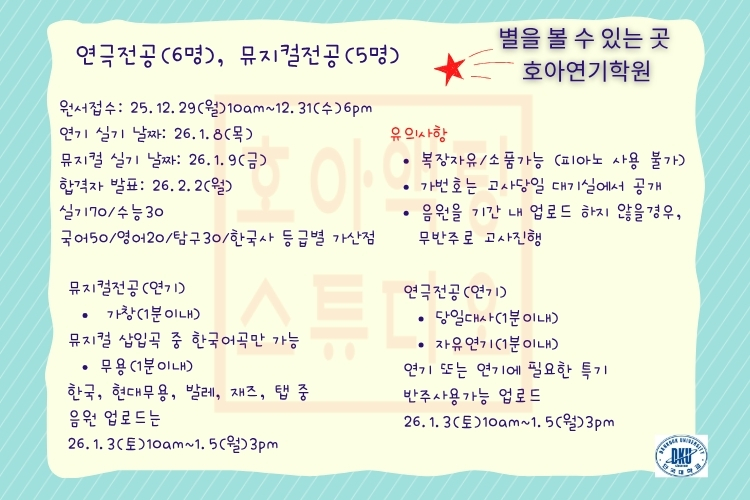 연극전공(6명), 뮤지컬전공(5명)
별을 볼 수 있는 곳
호아연기학원
원서접수: 25.12.29(월)10am~12.31(수)6pm
연기 실기 날짜: 26.1.8(목)
뮤지컬 실기 날짜: 26.1.9(금)
합격자 발표: 26.2.2(월)
실기70/수능30
국어50/영어20/탐구30/한국사 등급별 가산점
유의사항
• 복장자유/소품가능 (피아노 사용 불가)
• 가번호는 고사당일 대기실에서 공개
• 음원을 기간 내 업로드 하지 않을경우,
무반주로 고사진행
뮤지컬전공(연기)
• 가창(1분이내)
뮤지컬 삽입곡 중 한국어곡만 가능
• 무용(1분이내)
한국, 현대무용, 발레, 재즈, 탭 중
음원 업로드는
26.1.3(토)10am~1.5(월)3pm
연극전공(연기)
• 당일대사(1분이내)
• 자유연기(1분이내)
연기 또는 연기에 필요한 특기
반주사용가능 업로드
26.1.3(토)10am~1.5(월)3pm
호아액팅
스튜디오
DANKOOK UNIVERSITY
DKU
단국대학교